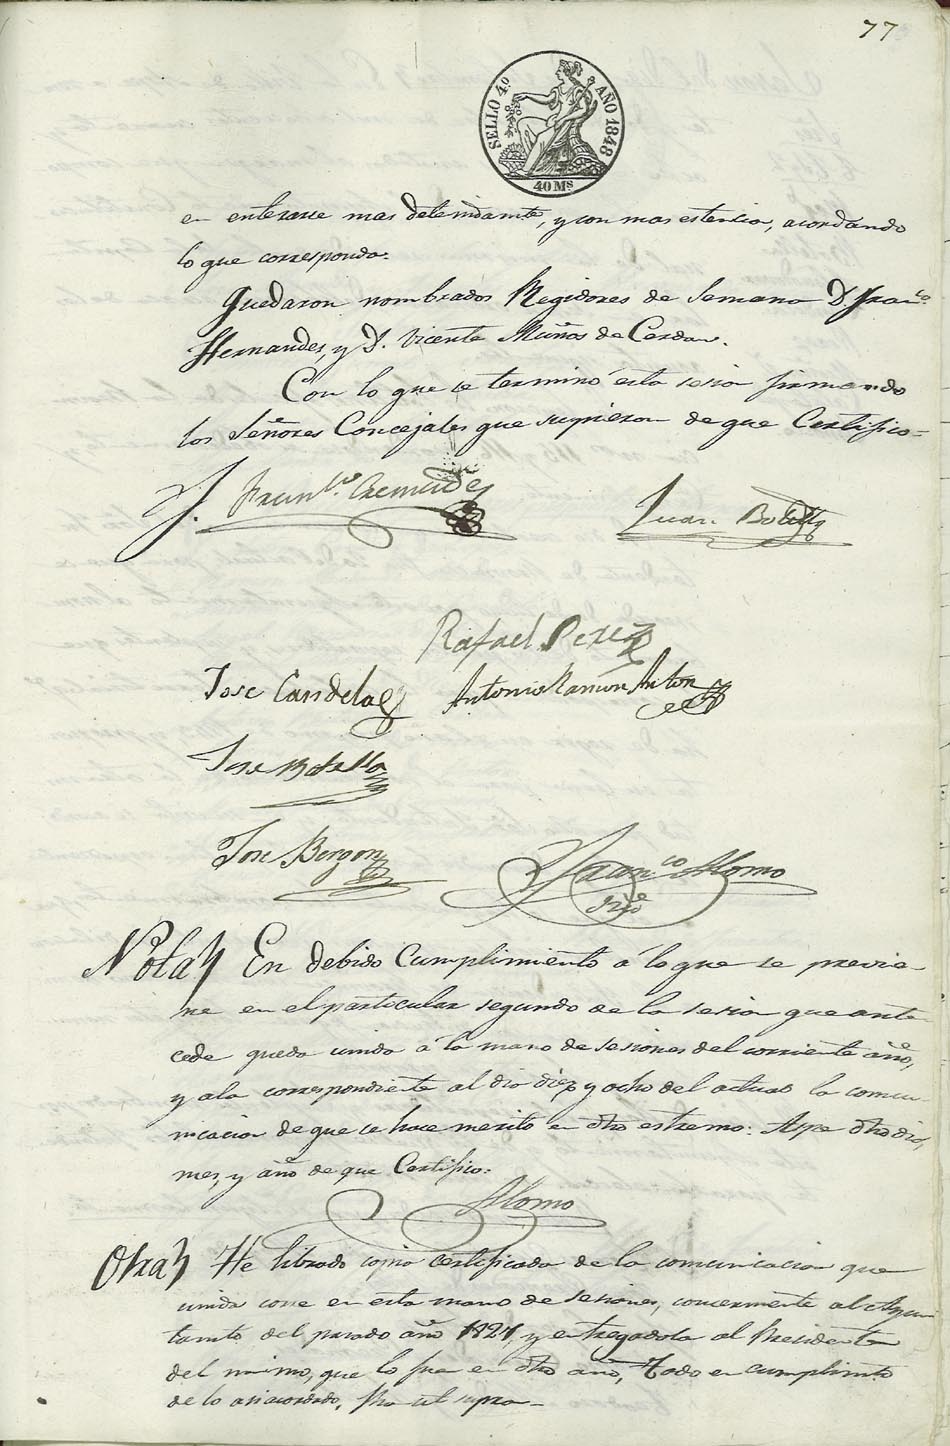 77
SELLO 4º AÑO 1848
40 Ms
en enterarse mas detenidamte, y con mas estencion, acordando
lo que corresponda.
Quedaron nombrados Regidores de Semana D. Franco
Hernandes, y D. Vicente Muños de Cerdan.
Con lo que se terminó esta sesion firmando
los Señores Concejales que supieron de que Certifico=
Juan Botella
Rafael Perez
Jose Candela Antonio Ramon Anton
Jose Botella
Jose Bergon Franco Alomo
Srio
Nota En debido Cumplimiento á lo que se previe
ne en el particular segundo de la sesion que ante
cede queda unida á la mano de sesiones del corriente año,
y ala correspondiente al dia diez y ocho del actual la comu
nicacion de que se hace merito en dho estremo: Aspe dho dia,
mes, y año de que Certifico:
Alomo
Otra He librado copia certificada de la comunicacion que
unida corre en esta mano de sesiones, concerniente al Ayun
tamto del pasado año 1821, y entregadola al Presidente
del mismo, que lo fue en dho año, Todo en cumplimto
de lo asi acordado, fha ut supra=